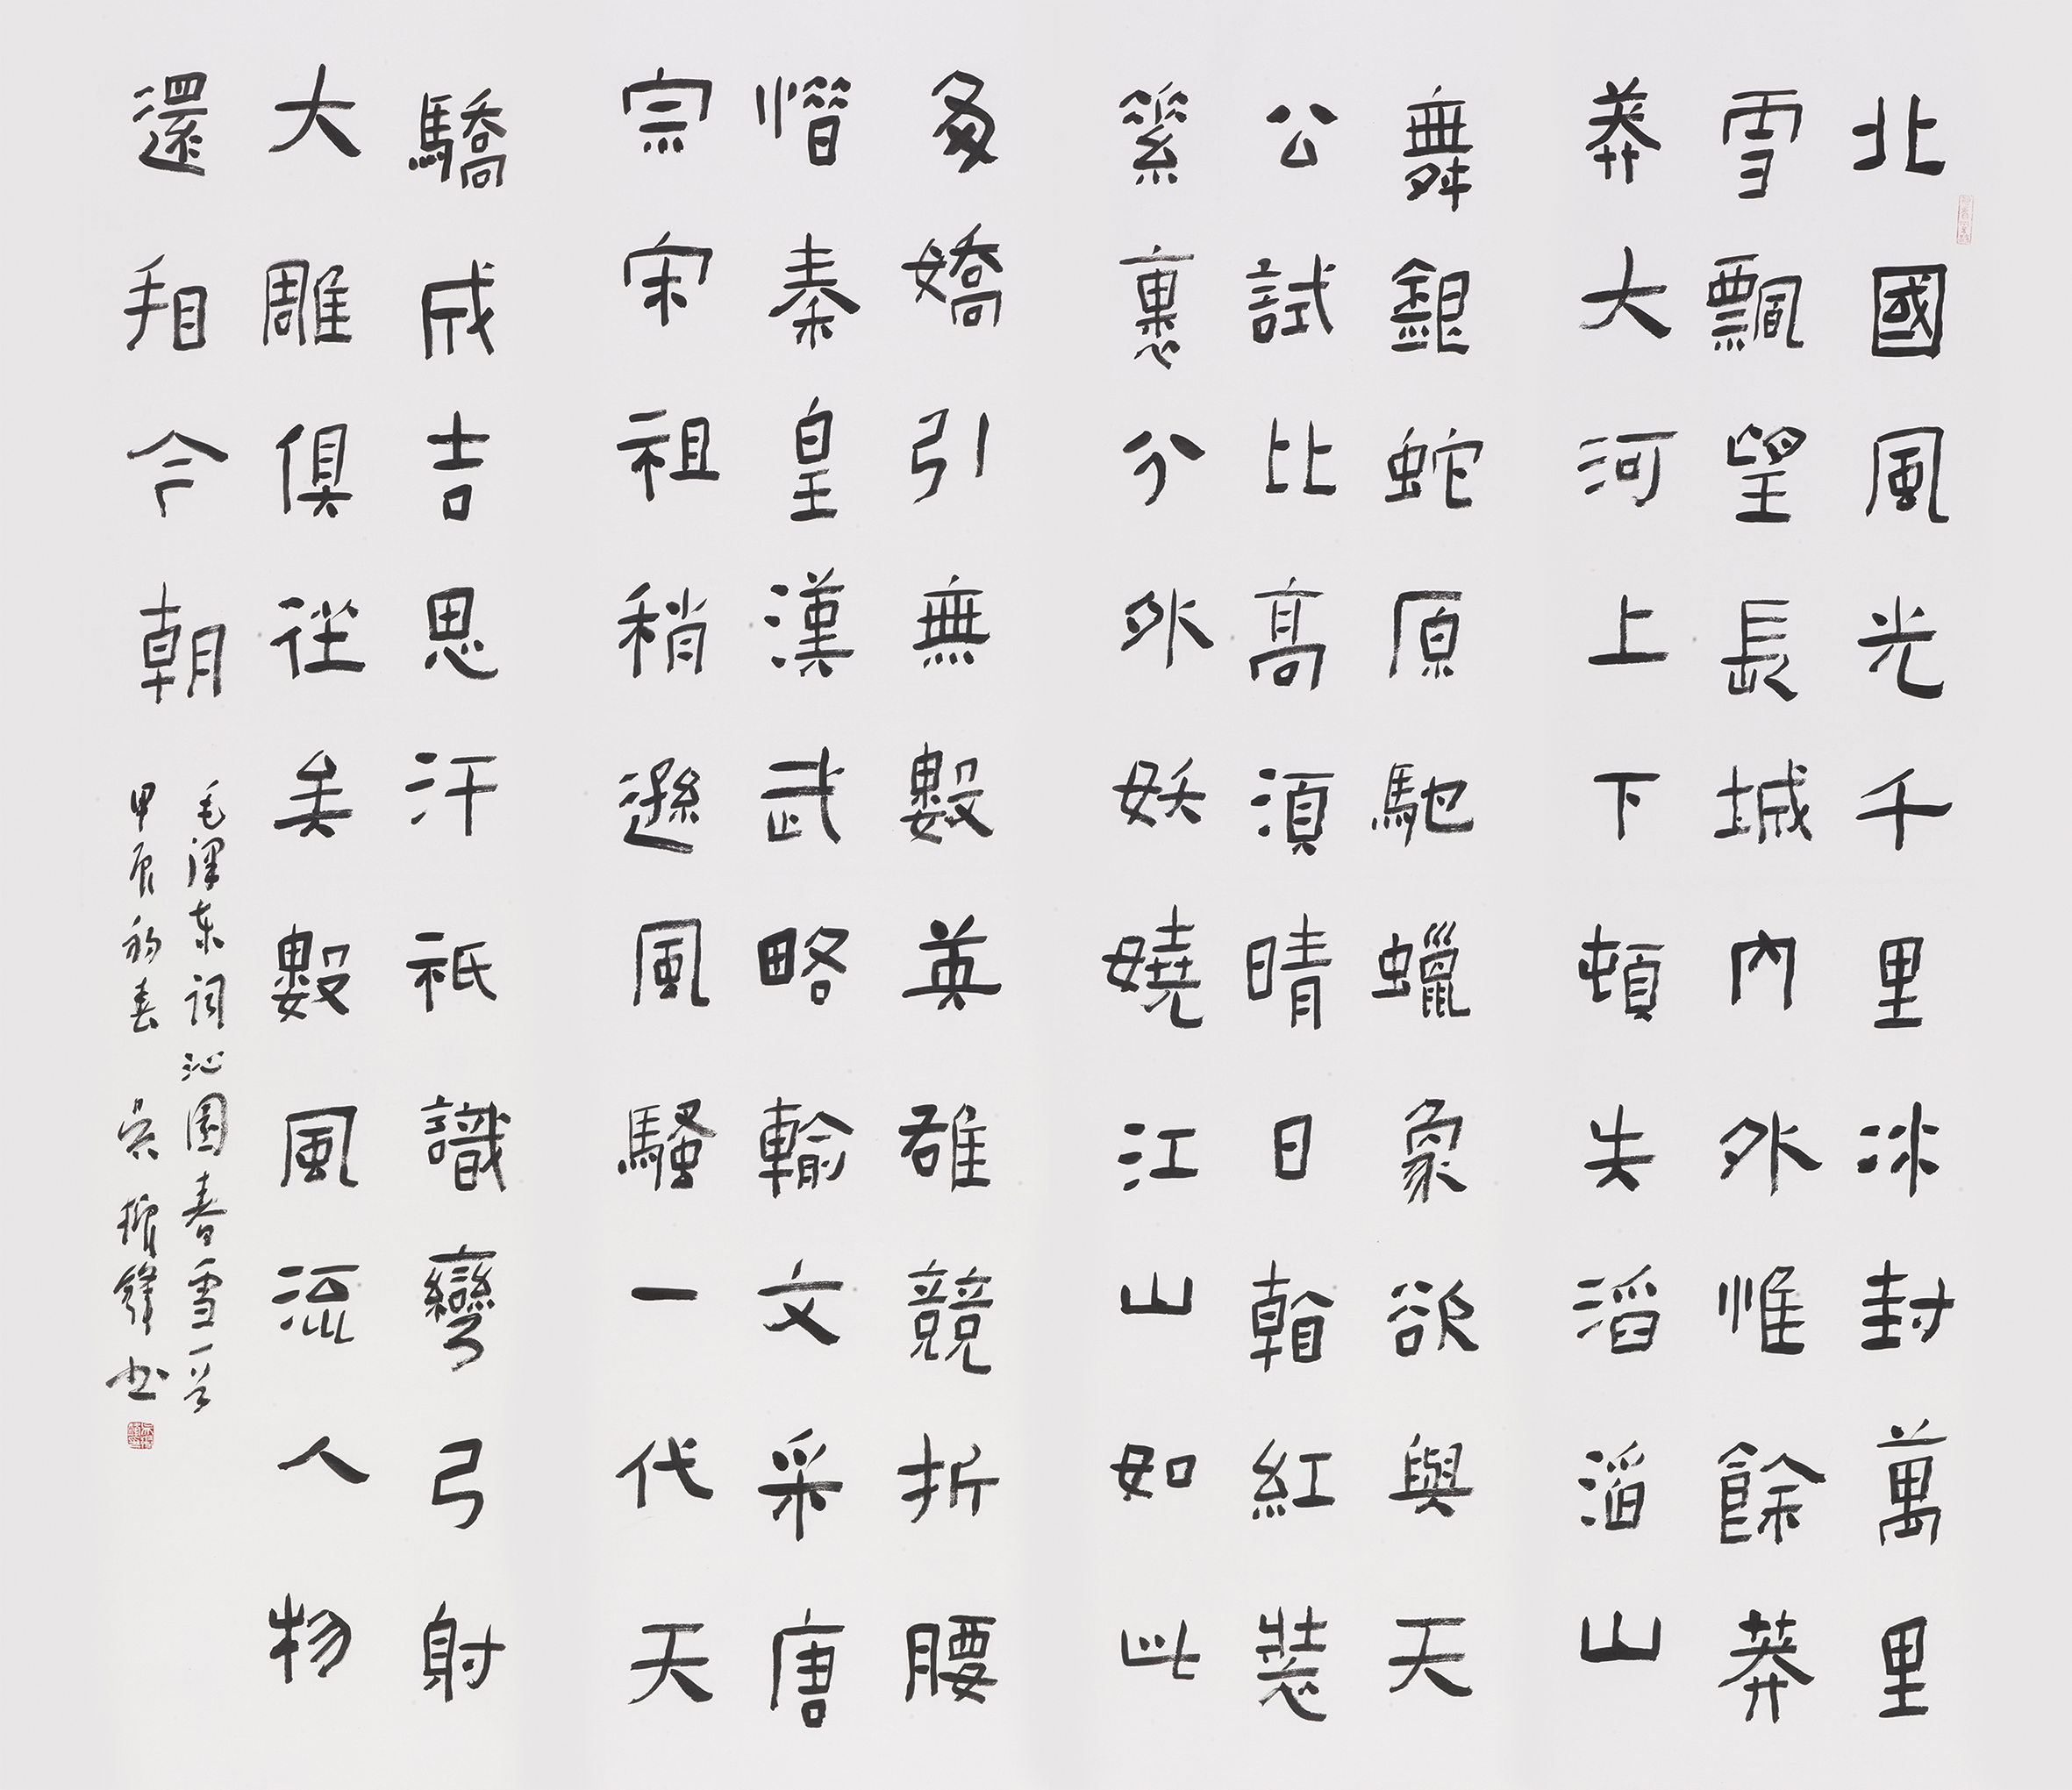 北國風光千里冰封萬里
雪飄望長城內外惟餘莽
莽大河上下頓失滔滔山
舞銀蛇原馳蠟象欲與天
公試比高須晴日看紅裝
素裹分外妖嬈江山如此
多嬌引無數英雄競折腰
惜秦皇漢武略輸文采唐
宗宋祖稍遜風騷一代天
驕成吉思汗祗識彎弓射
大雕俱往矣數風流人物
還看今朝
毛澤东词沁園春雪一首
甲辰初春 吳振鋒书